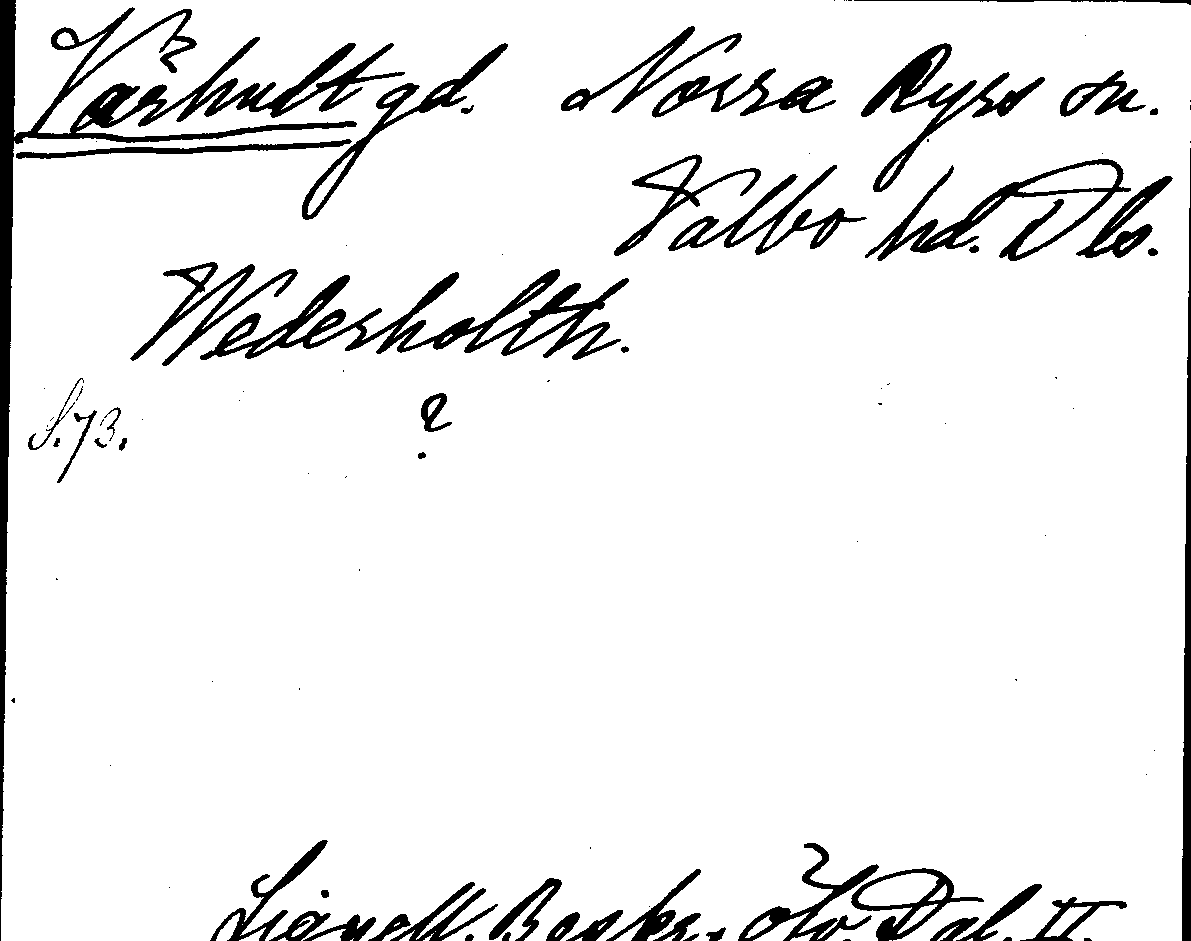 Vårhult gd. Norra Ryrs sn.
Valbo hd. Dls.
Wederholth.
S.73. ?
Lignell. Beskr. öfv. Dal. II.